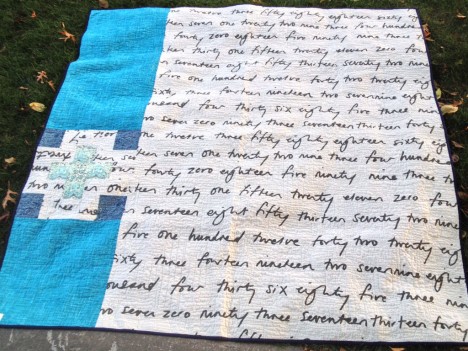 one twelve three fifty eighty eighteen sixty
seven seven one twenty two nine three four hundred
forty zero eighteen five ninety nine three
thirty one fifteen twenty eleven zero
seventeen eight fifty thirteen seventy two nine
five one hundred twelve forty two twenty
three fourteen nineteen two seven nine eight
four thirty six eighty five three nine
seven zero ninety three seventeen thirteen forty
one twelve three fifty eighty eighteen sixty
seven seven one twenty two nine three four hundred
four forty zero eighteen five ninety nine three
thirty one fifteen twenty eleven zero four
three seventeen eight fifty thirteen seventy two nine
five one hundred twelve forty two twenty
sixty three fourteen nineteen two seven nine eight
four thirty six eighty five three nine
seven zero ninety three seventeen thirteen forty
fifty eighty